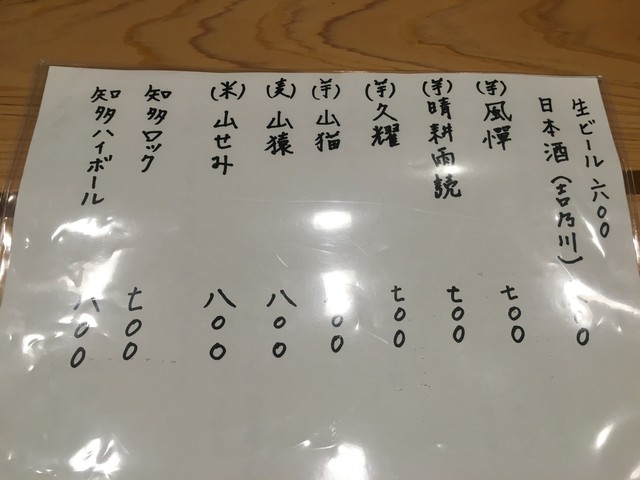 生ビール 六〇〇
日本酒(吉乃川) 〇〇
(芋)風憚 七〇〇
(芋)晴耕雨読 七〇〇
(芋)久耀 七〇〇
(芋)山猫 〇〇
(麦)山猿 八〇〇
(米)山せみ 八〇〇
知多ロック 七〇〇
知多ハイボール 八〇〇